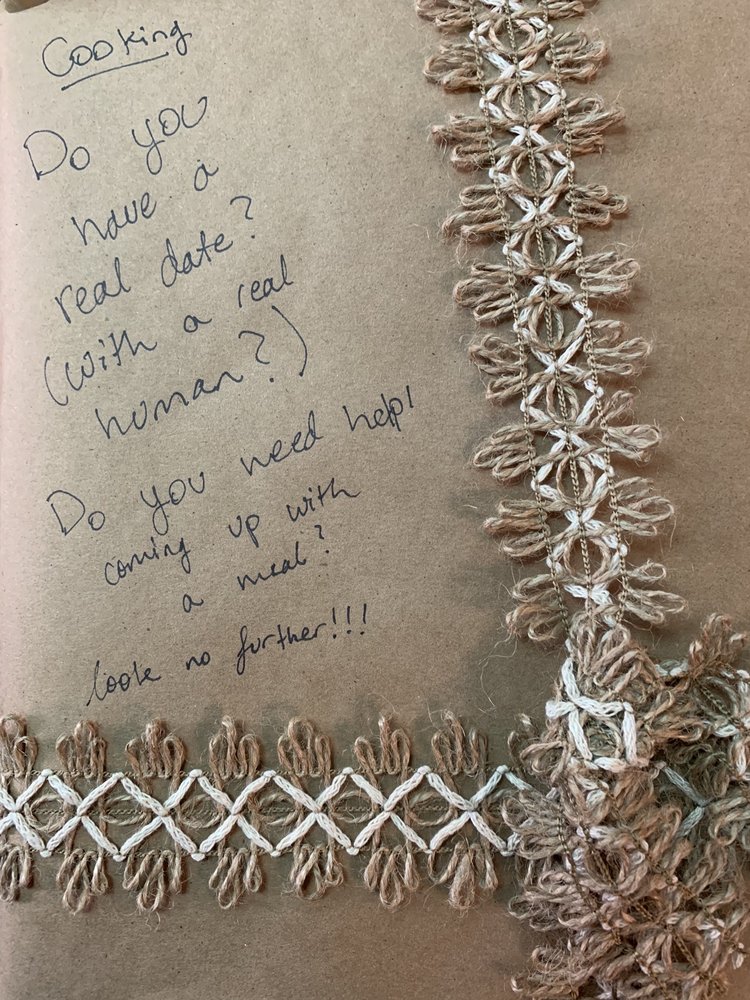 Cooking
Do you
have a
real date?
(with a real
human?)
Do you need help!
coming up with
a meal?
look no further!!!